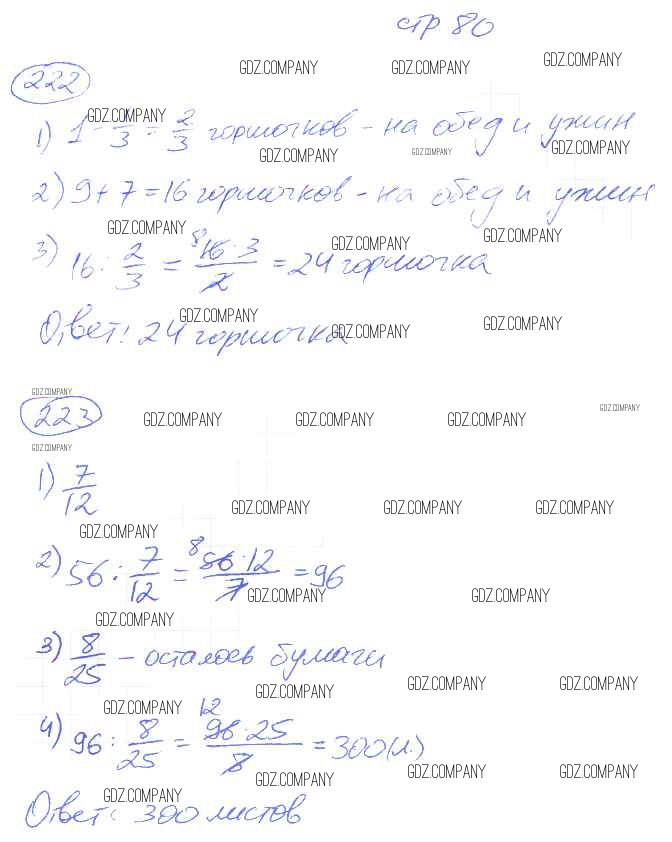 стр 80
GDZ.COMPANY GDZ.COMPANY GDZ.COMPANY
222
GDZ.COMPANY
1) 1 - 1/3 = 2/3 гормочков - на обед и ужин
GDZ.COMPANY GDZ.COMPANY GDZ.COMPANY
2) 9 + 7 = 16 гормочков - на обед и ужин
GDZ.COMPANY GDZ.COMPANY GDZ.COMPANY
3) 16 : 2/3 = 8 16 · 3 / 2 = 24 гормочка
GDZ.COMPANY GDZ.COMPANY GDZ.COMPANY
Ответ: 24 гормочка
GDZ.COMPANY GDZ.COMPANY
223 GDZ.COMPANY GDZ.COMPANY GDZ.COMPANY
GDZ.COMPANY
1) 7/12
GDZ.COMPANY GDZ.COMPANY GDZ.COMPANY
GDZ.COMPANY
2) 56 : 7/12 = 8 56 · 12 / 7 = 96
GDZ.COMPANY GDZ.COMPANY
GDZ.COMPANY
3) 8/25 - осталось бумаги
GDZ.COMPANY GDZ.COMPANY GDZ.COMPANY
GDZ.COMPANY
4) 96 : 8/25 = 12 96 · 25 / 8 = 300 (л.)
GDZ.COMPANY GDZ.COMPANY GDZ.COMPANY
GDZ.COMPANY
Ответ: 300 листов